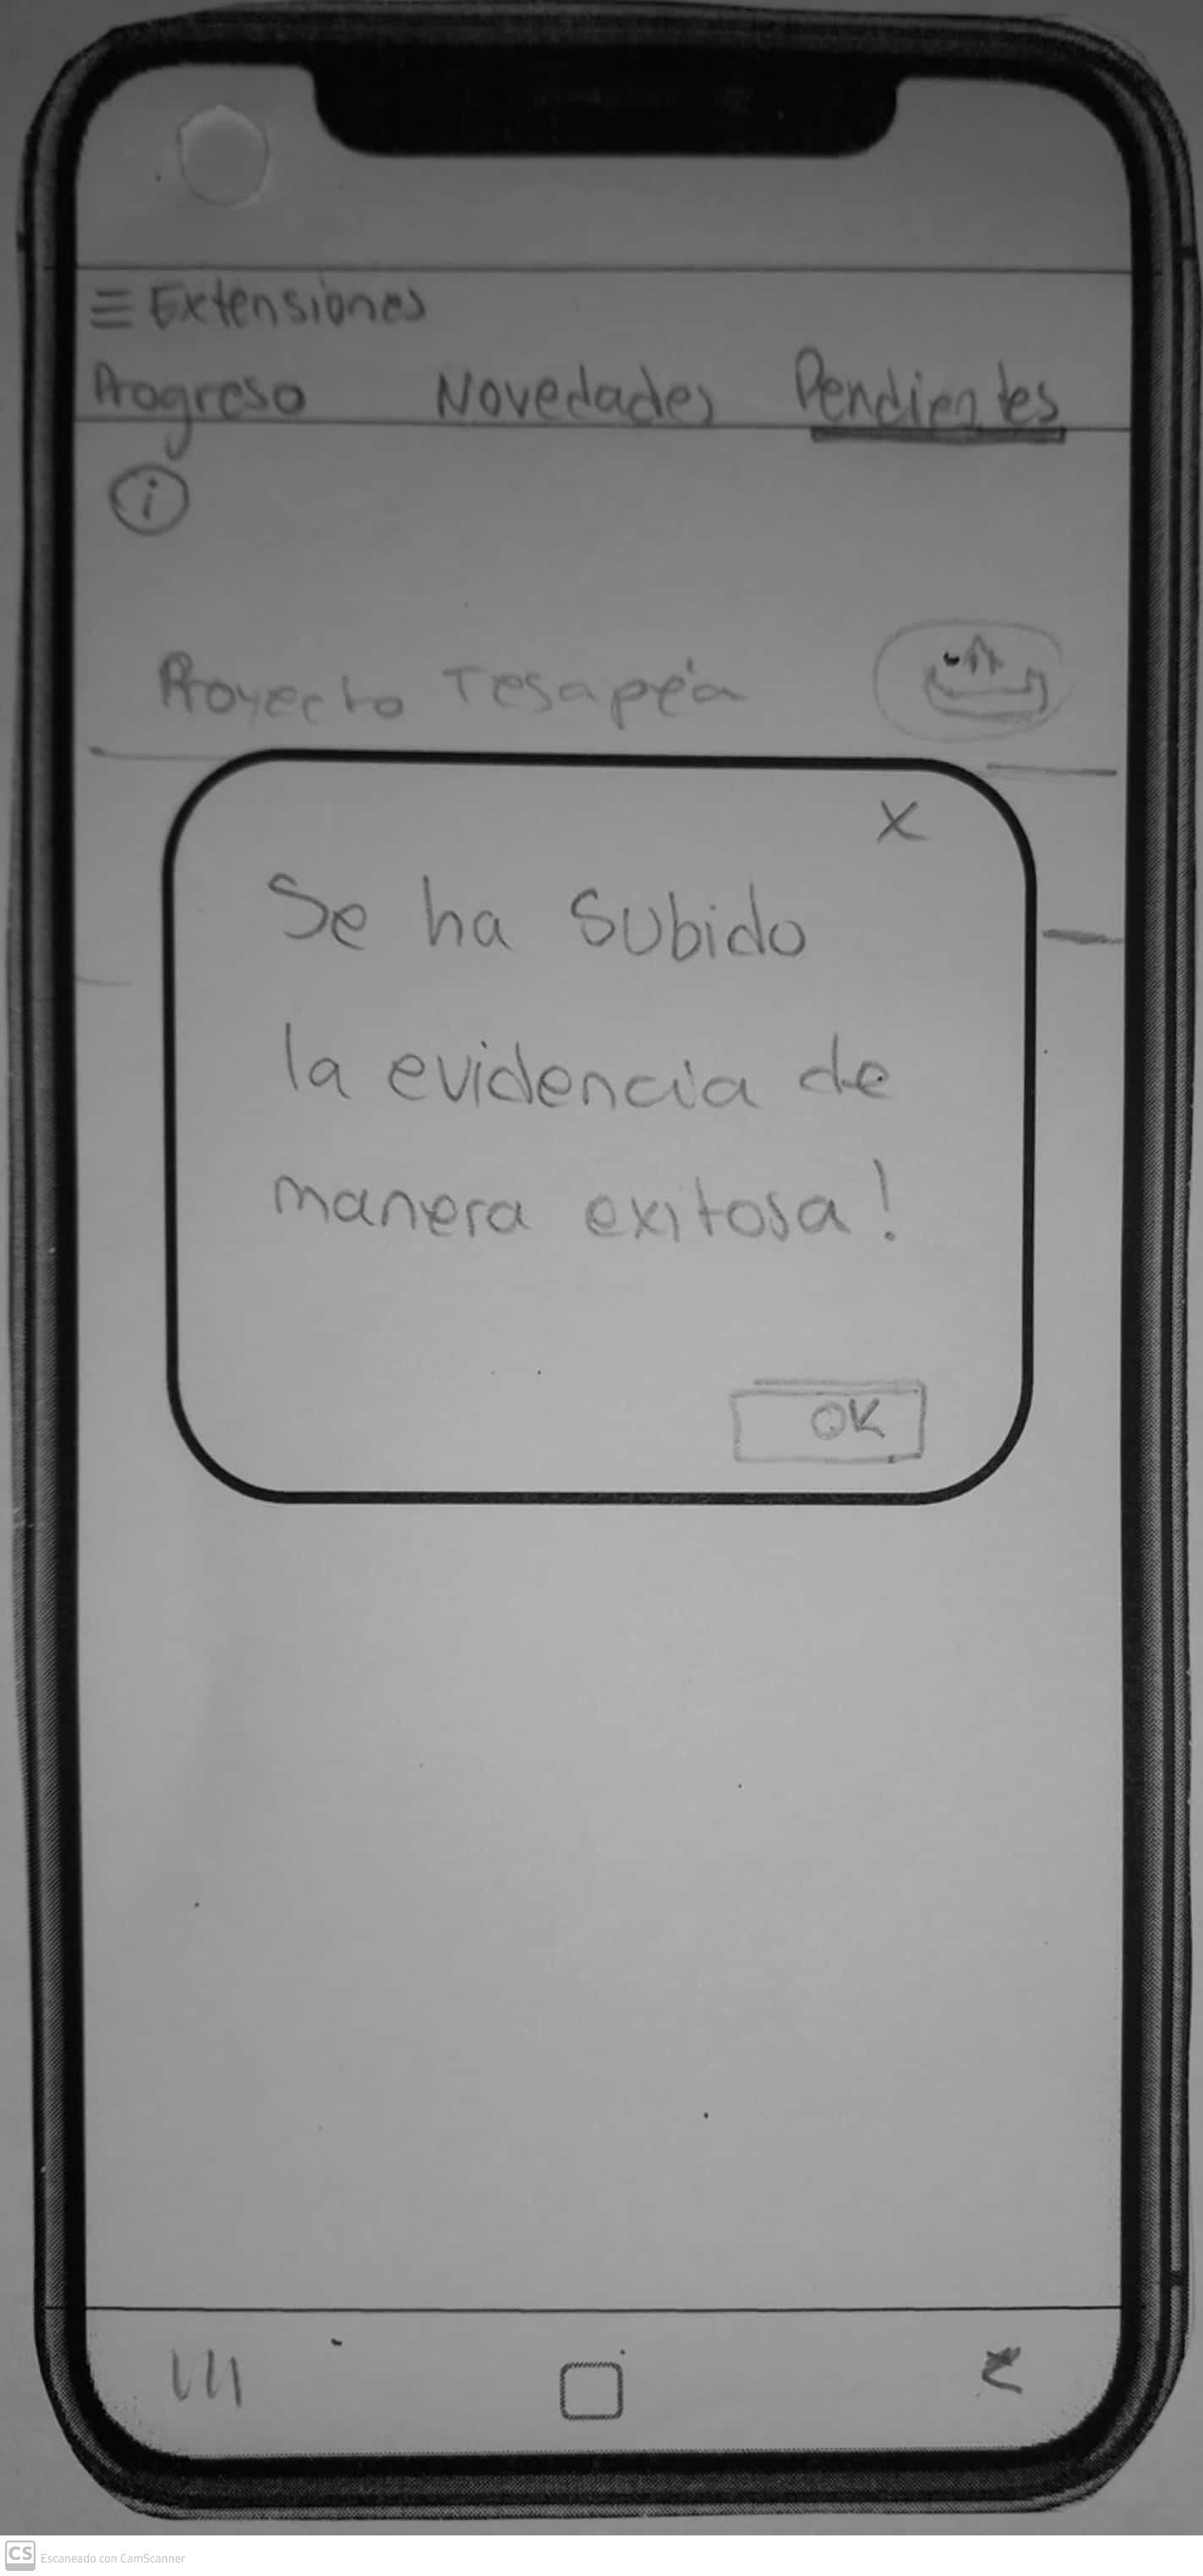 Extensiones
Progreso Novedades Pendientes
i
Proyecto Tesapéa
X
Se ha subido
la evidencia de
manera exitosa!
OK
CS Escaneado con CamScanner